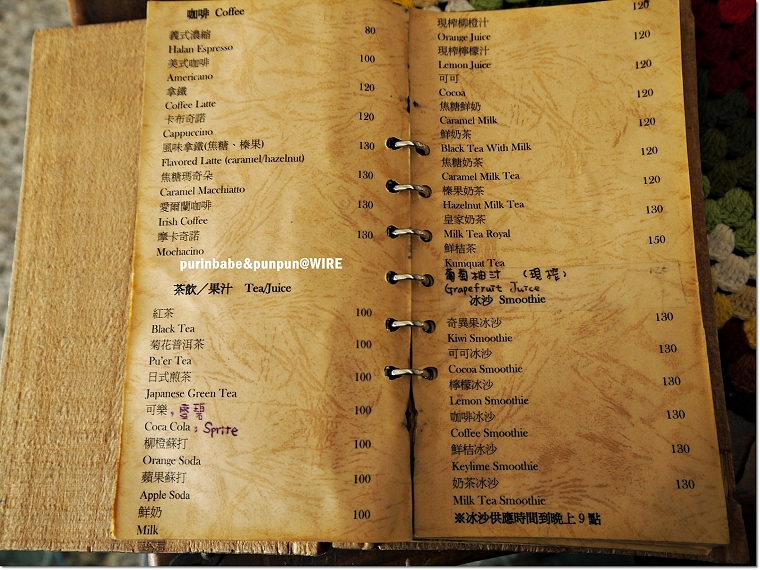 咖啡 Coffee
義式濃縮 80
Halan Espresso
美式咖啡 100
Americano
拿鐵 120
Coffee Latte
卡布奇諾 120
Cappuccino
風味拿鐵(焦糖、榛果) 130
Flavored Latte (caramel/hazelnut)
焦糖瑪奇朵 130
Caramel Macchiatto
愛爾蘭咖啡 130
Irish Coffee
摩卡奇諾 130
Mochacino
purinbabe&punpun@WIRE
茶飲／果汁 Tea/Juice
紅茶 100
Black Tea
菊花普洱茶 100
Pu'er Tea
日式煎茶 100
Japanese Green Tea
可樂，雪碧 100
Coca Cola ; Sprite
柳橙蘇打 100
Orange Soda
蘋果蘇打 100
Apple Soda
鮮奶 100
Milk
120
現榨柳橙汁
Orange Juice 120
現榨檸檬汁
Lemon Juice 120
可可
Cocoa 120
焦糖鮮奶
Caramel Milk 120
鮮奶茶
Black Tea With Milk 120
焦糖奶茶
Caramel Milk Tea 120
榛果奶茶
Hazelnut Milk Tea 130
皇家奶茶
Milk Tea Royal 150
鮮桔茶
Kumquat Tea
葡萄柚汁 (現榨)
Grapefruit Juice
冰沙 Smoothie
奇異果冰沙 130
Kiwi Smoothie
可可冰沙 130
Cocoa Smoothie
檸檬冰沙 130
Lemon Smoothie
咖啡冰沙 130
Coffee Smoothie
鮮桔冰沙 130
Keylime Smoothie
奶茶冰沙 130
Milk Tea Smoothie
※冰沙供應時間到晚上9點